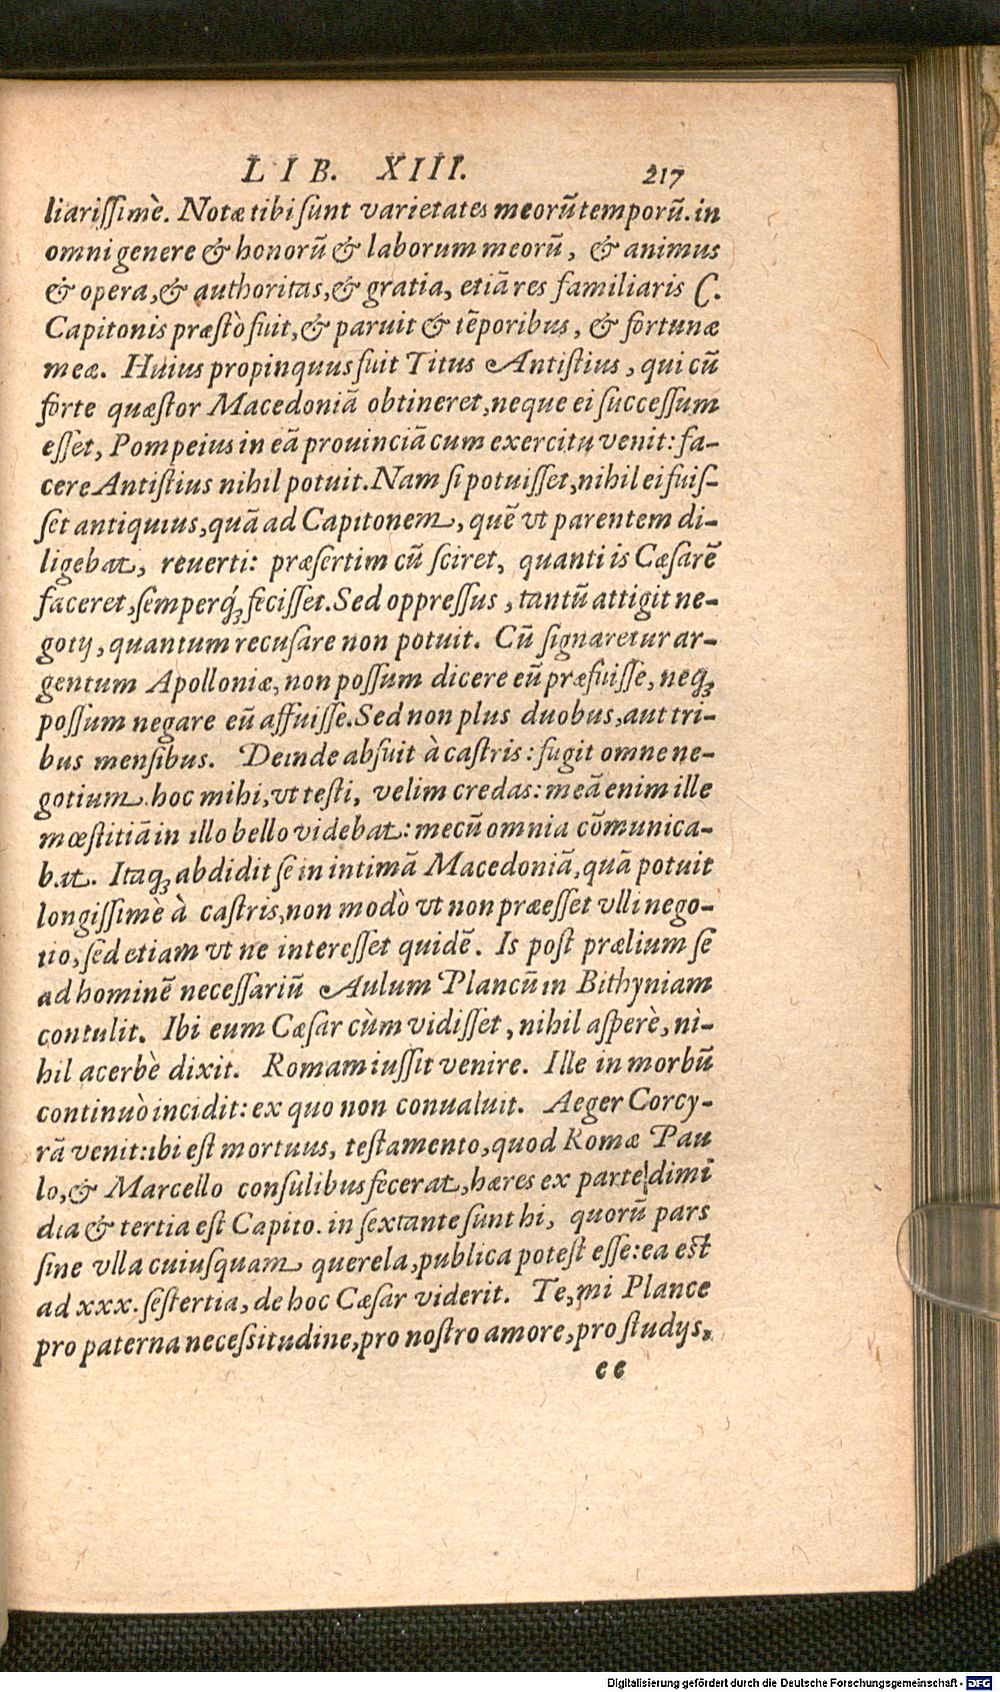 LIB. XIII. 217
liariſſimè. Notæ tibi ſunt varietates meorũ temporũ. in
omni genere & honorũ & laborum meorũ, & animus
& opera, & authoritas, & gratia, etiã res familiaris C.
Capitonis præſtò fuit, & paruit & tẽporibus, & fortunæ
meæ. Huius propinquus fuit Titus Antiſtius, qui cũ
forte quæſtor Macedoniã obtineret, neque ei ſucceſſum
eſſet, Pompeius in eã prouinciã cum exercitu venit: fa-
cere Antiſtius nihil potuit. Nam ſi potuiſſet, nihil ei fuiſ-
ſet antiquius, quã ad Capitonem, quẽ vt parentem di-
ligebat, reuerti: præſertim cũ ſciret, quanti is Cæſarẽ
faceret, ſemperq́ꝫ feciſſet. Sed oppreſſus, tantũ attigit ne-
gotij, quantum recuſare non potuit. Cũ ſignaretur ar-
gentum Apolloniæ, non poſſum dicere eũ præfuiſſe, neqꝫ
poſſum negare eũ affuiſſe. Sed non plus duobus, aut tri-
bus menſibus. Deinde abfuit à caſtris: fugit omne ne-
gotium. hoc mihi, vt teſti, velim credas: meã enim ille
mœſtitiã in illo bello videbat: mecũ omnia cõmunica-
bat. Itaqꝫ abdidit ſe in intimã Macedoniã, quã potuit
longiſſimè à caſtris, non modò vt non præeſſet vlli nego-
tio, ſed etiam vt ne intereſſet quidẽ. Is poſt prælium ſe
ad hominẽ neceſſariũ Aulum Plancũ in Bithyniam
contulit. Ibi eum Cæſar cùm vidiſſet, nihil aſperè, ni-
hil acerbè dixit. Romam iuſſit venire. Ille in morbũ
continuò incidit: ex quo non conualuit. Aeger Corcy-
rã venit: ibi eſt mortuus, teſtamento, quod Romæ Pau
lo, & Marcello conſulibus fecerat, hæres ex parte dimi
dia & tertia eſt Capito. in ſextante ſunt hi, quorũ pars
ſine vlla cuiuſquam querela, publica poteſt eſſe: ea eſt
ad xxx. ſeſtertia, de hoc Cæſar viderit. Te, mi Plance
pro paterna neceſsitudine, pro noſtro amore, pro ſtudijs,
ee
Digitalisierung gefördert durch die Deutsche Forschungsgemeinschaft - DFG